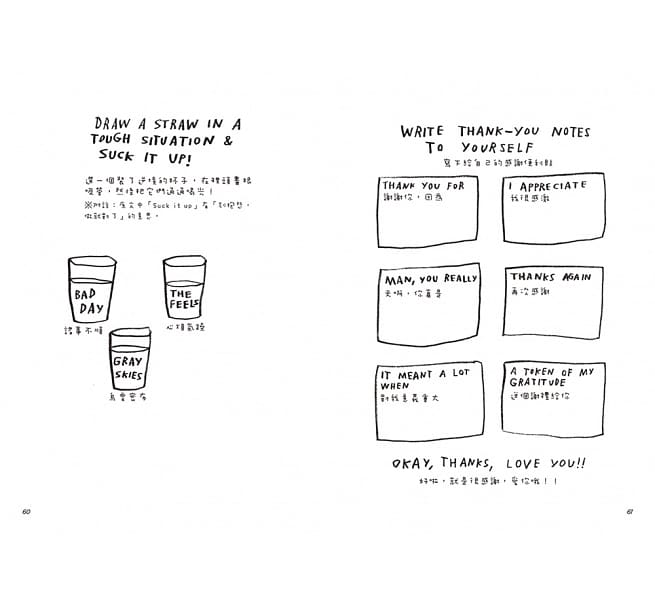 DRAW A STRAW IN A
TOUGH SITUATION &
SUCK IT UP!
選一個裝了逆境的杯子，在裡頭畫根
吸管，然後把它們通通喝光！
※附註：原文中「Suck it up」有「別抱怨，
做就對了」的意思。
BAD
DAY
諸事不順
THE
FEELS
心煩氣躁
GRAY
SKIES
烏雲密布
60
WRITE THANK-YOU NOTES
TO YOURSELF
寫下給自己的感謝便利貼
THANK YOU FOR
謝謝你，因為
I APPRECIATE
我很感激
MAN, YOU REALLY
天啊，你真是
THANKS AGAIN
再次感謝
IT MEANT A LOT
WHEN
對我意義重大
A TOKEN OF MY
GRATITUDE
這個謝禮給你
OKAY, THANKS, LOVE YOU!!
好啦，就是很感謝，愛你哦！！
61